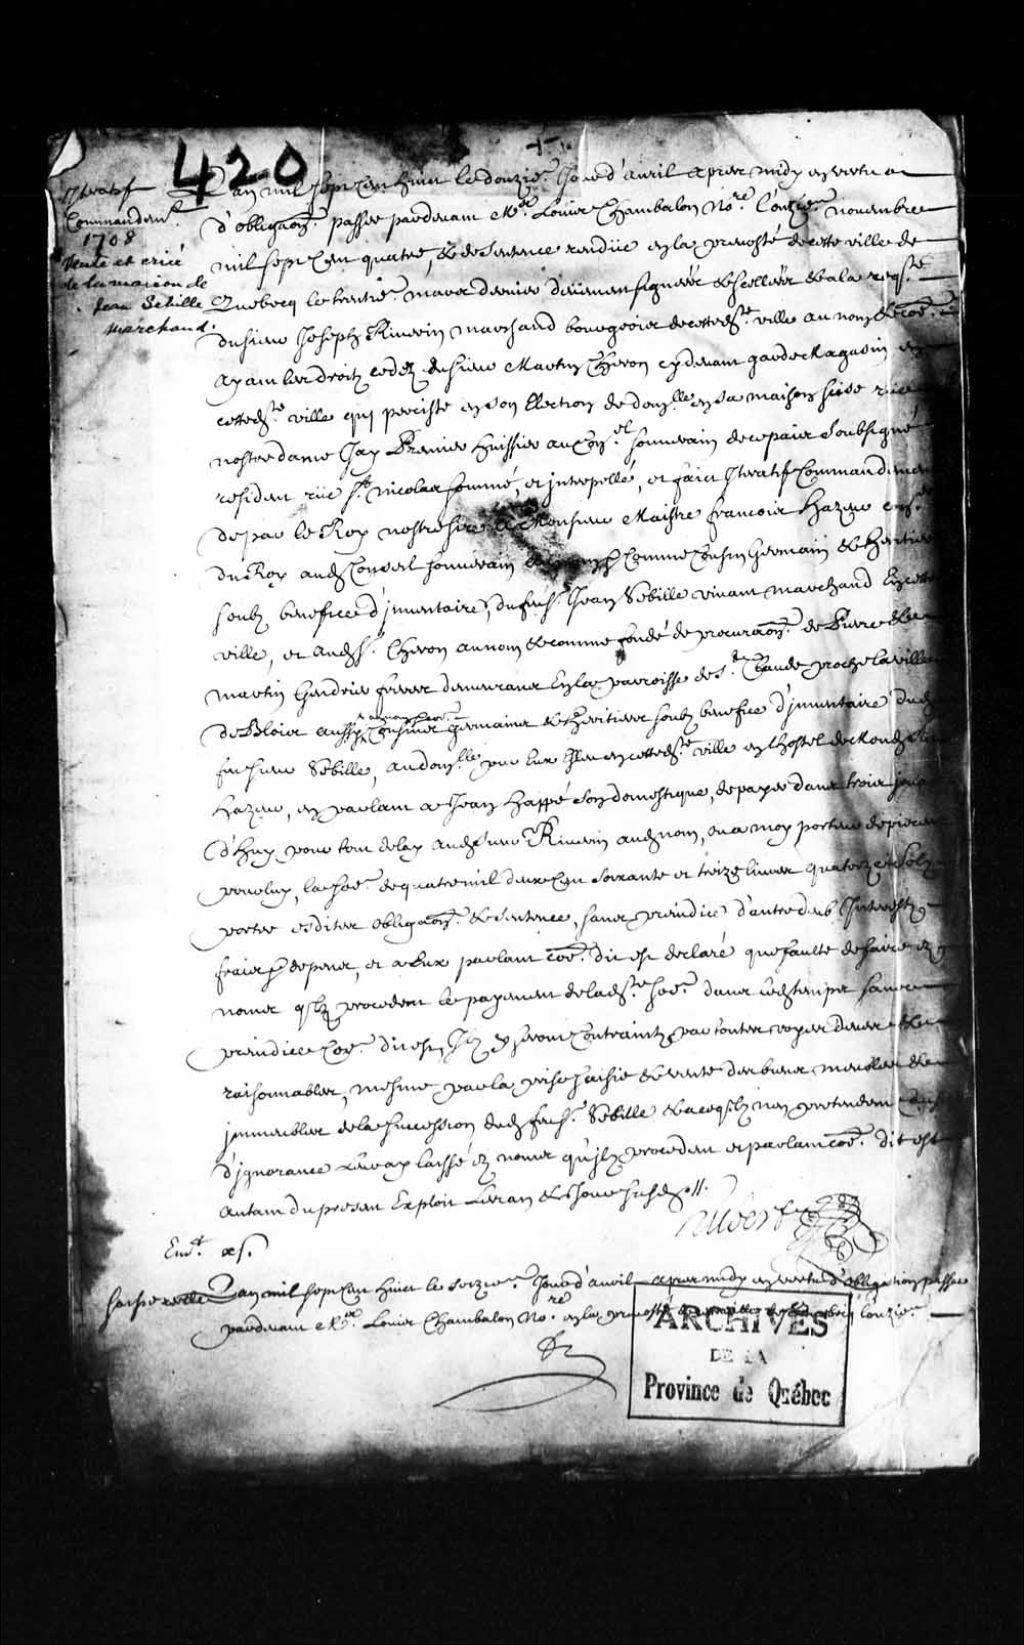 420
Iteratif
Commandemt.
1708
Vente et criée
de la maison de
Jean Sebille
marchand.
L'an mil sept Cen huict le douzie. Jour d'auril apres midy en vertu
d'obligaon. passée pardeuant Me. Louis Chambalon Nore. L'onzie. nouembre
mil sept Cen quatre, & de Sentence rendüe en la preuosté de cette ville de
Quebecq le trentie. mars dernier deüement signéés & scelléés & a la reqste.
du sieur Joseph Riuerin marchand bourgeois de cettedte. ville au nom & coe.
ayant les droits cedez du sieur Martin Cheron cy deuant garde Magasin en
cettedte. ville qui persiste en son Election de domlle. en sa maison size rüe
nostre dame Jay Premier huissier au Conel. souuerain de ce pais soubsigné
residant rüe St. Nicolas sommé, et interpellé, et faict Iteratif Commandement
de par le Roy nostre sire a Monsieur Maistre francois hazeur
du Roy aud Conseil souuerain Comme Cousin Germain & heritier
soubz benefice d'inuentaire, du feu sr. Jean Sebille viuant marchand En cette
ville, et aud sr. Cheron au nom & comme fondé de procuraon. de Pierre &
martin freres demeurans En la parroisse de St. Claude proche la ville
De Blois aussy Cousins germains & heritiers soubz benefice d'inuentaire dud
feu sieur Sebille, au domlle. par Eux Esleu en cettedte. ville en l'hostel de Mond sieur
hazeur, en parlant a Jean happé son domestique, de payer dans trois jours
d'huy pour tout delay aud sieur Riuerin aud nom, ou a moy porteur de pieces
pour luy, la soe. de quatre mil deux Cen soixante et treize liures quatorze sols
portée esdites obligaon. & sentence, sans preiudice d'autre deub Interests
frais & depens, et a Eux parlant coe. dit est declaré que faulte de faire
nomer qu'ilz procedent le payement de ladte. soe. dans led temps sans
preiudice coe. dit est, Ilz y seront Contraints par toutes voyes deues &
raisonnables, mesme par la prise saisie & vente des biens meubles &
immeubles de la succession dud feu sr. Sebille & a ce qu'ilz n'en pretendent cause
d'ignorance Leur ay laissé et nomer qu'ilz procedent et parlant coe. dit est
autant du present Exploit Les an & Jour susd //.
Saisie reelle
L'an mil sept Cen huict le seizie. Jour d'auril apres midy en vertu d'obligation passée
pardeuant Me. Louis Chambalon Nore. en la preuosté de cette ville de Quebecq l'onzie.
ARCHIVES
DE LA
Province de Québec